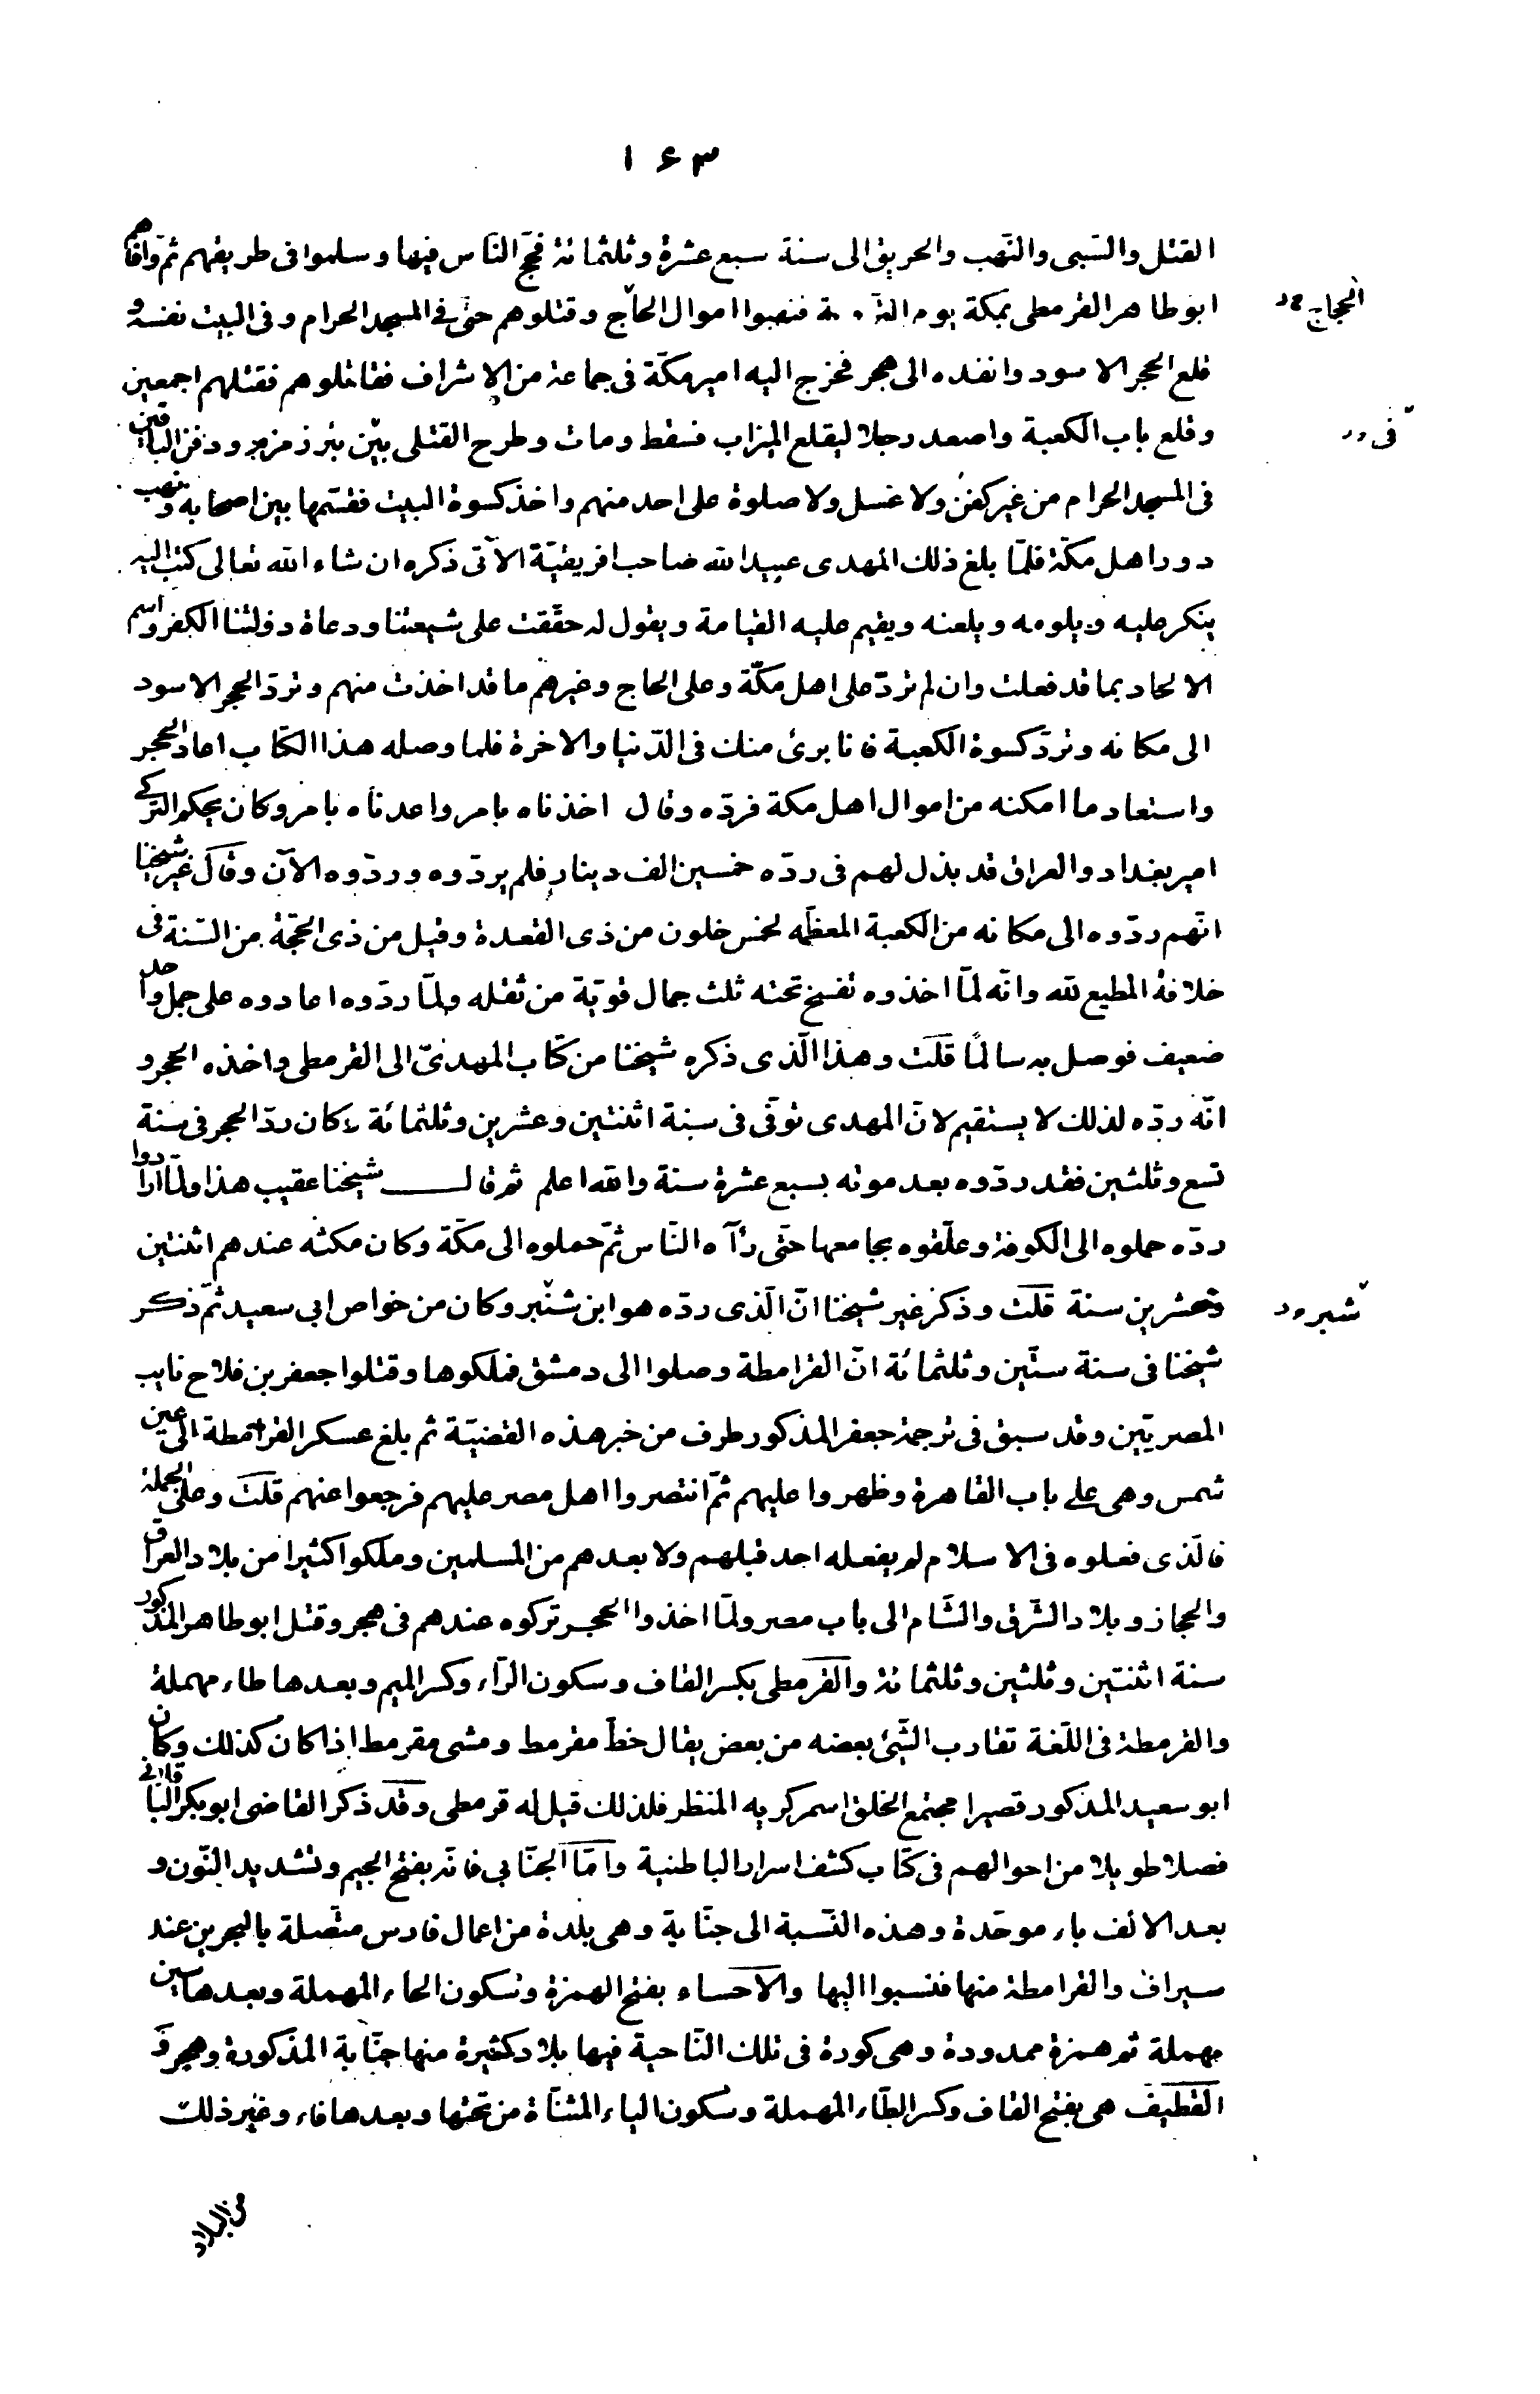 ١٦٣
القتل والسّبى والنّهب والحريق الى سنة سبع عشرة وثلثمائة فحجّ النّاس فيها وسلموا فى طريقهم ثمّ وافاهم
ابو طاهر القرمطى بمكة يوم فنهبوا اموال الحاّج وقتلوهم حتّى فى المسجد الحرام وفى البيت نفسه و
الحجاج
قلع الحجر الاسود وانفذه الى هجر فخرج اليه امير مكّة فى جماعة من الاشراف فقاتلوهم فقتلهم اجمعين
وقلع باب الكعبة واصعد رجلا ليقلع الميزاب فسقط ومات وطرح القتلى بيّن بئر زمزم ودفن الباقين
فى
فى المسجد الحرام من غير كفن ولا غسل ولا صلوة على احد منهم واخذ كسوة البيت فقسّمها بين اصحابه ونهب
دور اهل مكّة فلمّا بلغ ذلك المهدى عبيد الله صاحب افريقيّة الآتى ذكره ان شاء الله تعالى كتب اليه
ينكر عليه ويلومه ويلعنه ويقيم عليه القيامة ويقول له حقّقت على شيعتنا ودعاة دولتنا الكفر واسم
الالحاد بما قد فعلت وان لم تردّ على اهل مكّة وعلى الحاج وغيرهم ما قد اخذت منهم وتردّ الحجر الاسود
الى مكانه وتردّ كسوة الكعبة فانا برئ منك فى الدّنيا والاخرة فلما وصله هذا الكتاب اعاد الحجر
واستعاد ما امكنه من اموال اهل مكة فردّه وقال اخذناه بامر واعدناه بامر وكان بجكم التركى
امير بغداد والعراق قد بذل لهم فى ردّه خمسين الف دينار فلم يردّوه وردّوه الآن وقال غير شيخنا
انّهم ردّوه الى مكانه من الكعبة المعظّمه لخمس خلون من ذى القعدة وقيل من ذى الحجّة من السّنة فى
خلافة المطيع لله وانّه لمّا اخذوه تفسخ تحته ثلث جمال قويّة من ثقله ولمّا ردّوه اعادوه على جمل واحد
ضعيف فوصل به سالمًا قلت وهذا الّذى ذكره شيخنا من كتاب المهدىّ الى القرمطى واخذه الحجر و
انّه ردّه لذلك لا يستقيم لانّ المهدى توفّى فى سنة اثنتين وعشرين وثلثمائة وكان ردّ الحجر فى سنة
تسع وثلثين فقد ردّوه بعد موته بسبع عشرة سنة والله اعلم ثم قال شيخنا عقيب هذا ولمّا ارادوا
ردّه حملوه الى الكوفة وعلّقوه بجامعها حتّى رآه النّاس ثمّ حملوه الى مكّة وكان مكثه عندهم اثنتين
وعشرين سنة قلت وذكر غير شيخنا انّ الّذى ردّه هو ابن شنبر وكان من خواص ابى سعيد ثمّ ذكر
شبر
شيخنا فى سنة ستّين وثلثمائة انّ القرامطة وصلوا الى دمشق فملكوها وقتلوا جعفر بن فلاح نايب
المصريّين وقد سبق فى ترجمة جعفر المذكور طرف من خبر هذه القضيّة ثم بلغ عسكر القرامطة الى عين
شمس وهى على باب القاهرة وظهروا عليهم ثمّ انتصروا اهل مصر عليهم فرجعوا عنهم قلت وعلى الجملة
فالّذى فعلوه فى الاسلام لم يفعله احد قبلهم ولا بعدهم من المسلمين وملكوا كثيرا من بلاد العراق
والحجاز وبلاد الشّرق والشّام الى باب مصر ولمّا اخذوا الحجر تركوه عندهم فى هجر وقتل ابو طاهر المذكور
سنة اثنتين وثلثين وثلثمائة والقرمطى بكسر القاف وسكون الرّاء وكسر الميم وبعدها طاء مهملة
والقرمطة فى اللّغة تقارب الشّئ بعضه من بعض يقال خطّ مقرمط ومشى مقرمط اذا كان كذلك وكان
ابو سعيد المذكور قصيرا مجتمع الخلق اسمر كريه المنظر فلذلك قيل له قرمطى وقد ذكر القاضى ابو بكر الباقلانى
فصلا طويلا من احوالهم فى كتاب كشف اسرار الباطنية وامّا الجنّابى فانّه بفتح الجيم وتشديد النّون و
بعد الالف باء موحّدة وهذه النّسبة الى جنّابة وهى بلدة من اعمال فارس متّصلة بالبحرين عند
سيراف والقرامطة منها فنسبوا اليها والاحساء بفتح الهمزة وسكون الحاء المهملة وبعدها سين
مهملة ثم همزة ممدودة وهى كورة فى تلك النّاحية فيها بلاد كثيرة منها جنّابة المذكورة وهجر و
القطيف هى بفتح القاف وكسر الطّاء المهملة وسكون الياء المثنّاة من تحتها وبعدها فاء وغير ذلك
من البلاد